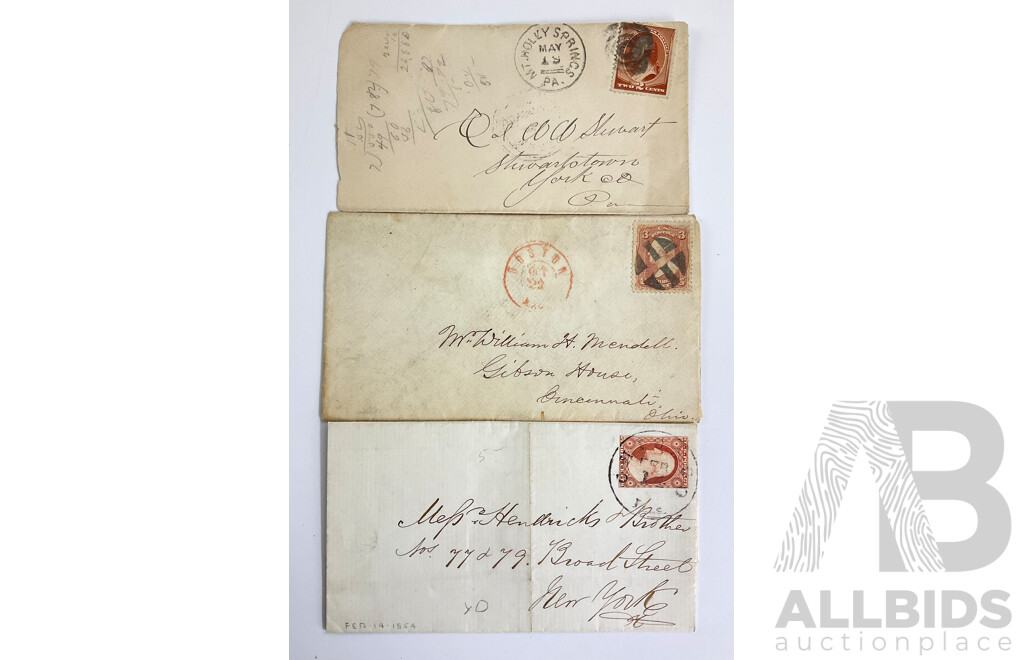 MT. HOLLY SPRINGS
MAY
PA.
TWO CENTS
Col W W Stewart
Stewartstown
York Co
Pa
BOSTON
OCT
22
3
3
Mr. William H. Mendell.
Gibson House,
Cincinnati,
Ohio.
5
FEB
Messrs Hendricks & Brother
Nos. 77 & 79. Broad Street
New York
FEB-14-1854
ALLBIDS
auctionplace